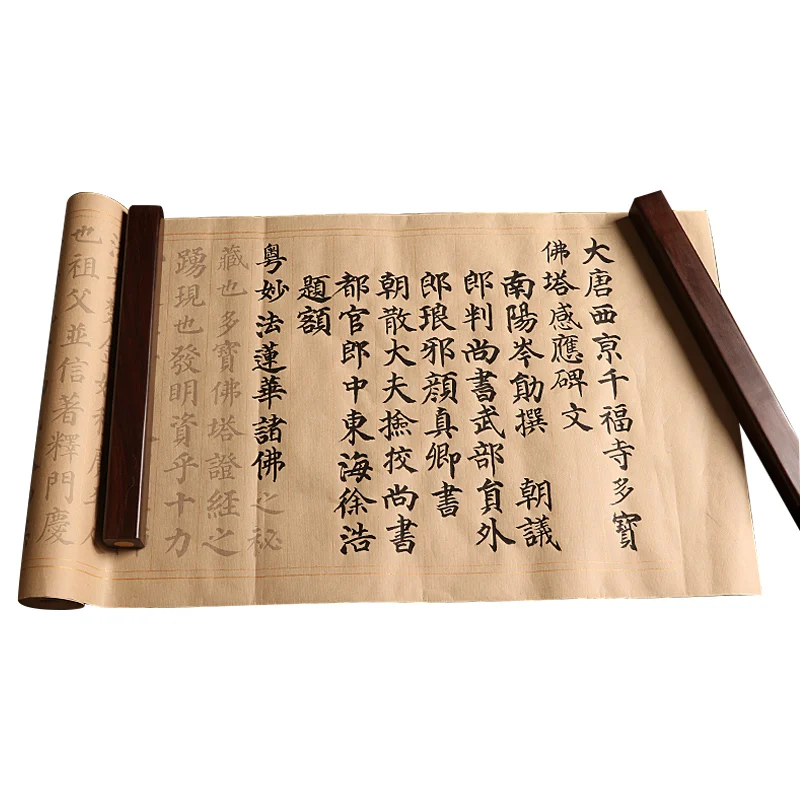 大唐西京千福寺多寶
佛塔感應碑文
南陽岑勛撰 朝議
郎判尚書武部員外
郎琅邪顏真卿書
朝散大夫撿挍尚書
都官郎中東海徐浩
題額
粵妙法蓮華諸佛之秘
藏也多寶佛塔證經之
踴現也發明資乎十力
也祖父並信著釋門慶